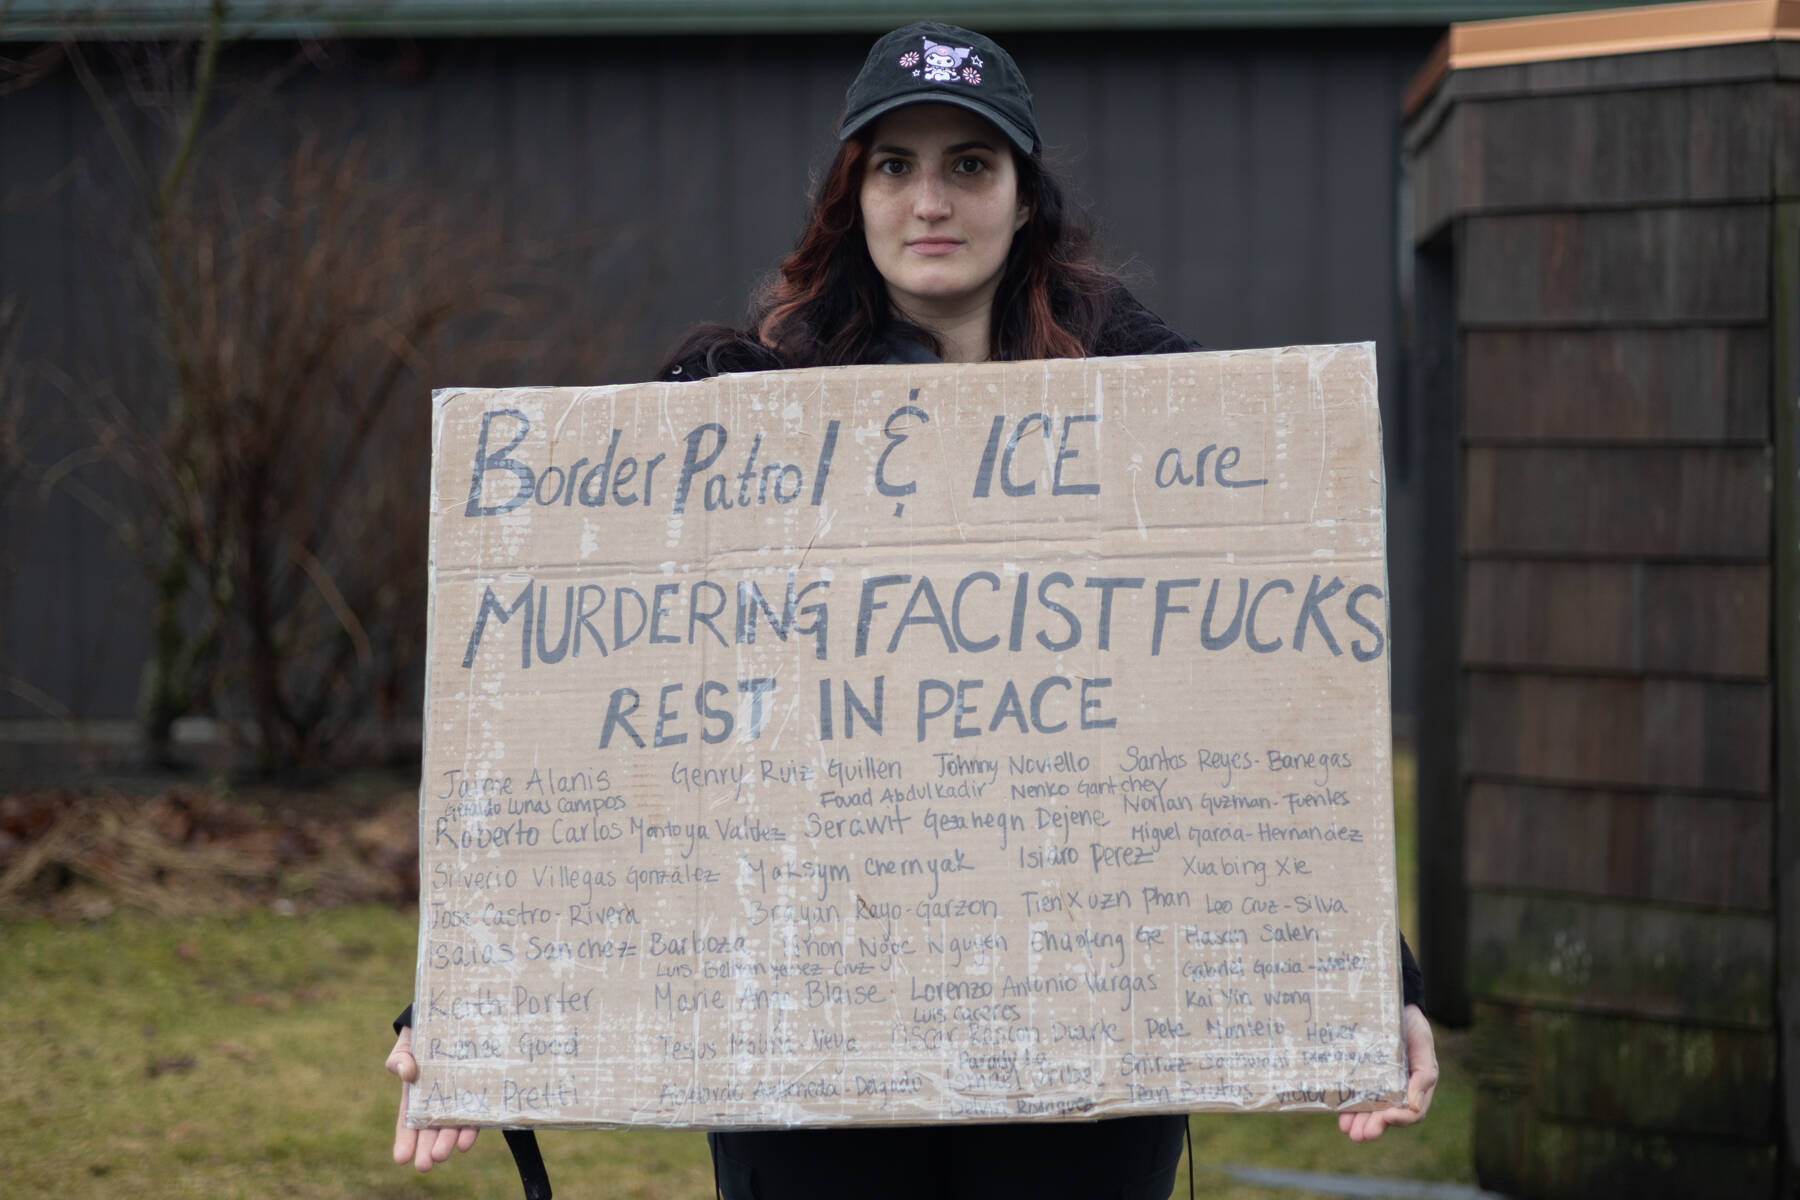 Border Patrol & ICE are
MURDERING FACIST FUCKS
REST IN PEACE
Jaime Alanis Genry Ruiz Guillen Johnny Noviello Santos Reyes-Banegas
Geraldo Lunas Campos Fouad Abdulkadir Nenko Gantchev Norlan Guzman-Fuentes
Roberto Carlos Montoya Valdez Serawit Gezahegn Dejene Miguel Garcia-Hernandez
Silverio Villegas González Maksym Chernyak Isidro Perez Xuabing Xie
Jose Castro-Rivera Brayan Rayo-Garzon Tien Xuan Phan Leo Cruz-Silva
Isaias Sanchez Barboza Nhon Ngoc Nguyen Chaofeng Ge Hasan Saleh
Luis Beltran Yanez-Cruz Gabriel Garcia
Keith Porter Marie Ange Blaise Lorenzo Antonio Vargas Kai Yin Wong
Luis Caceres
Renee Good Jesus Molina-Veya Oscar Rascon Duarte Pete Montejo Heber
Parady La
Ismael Uribe
Alex Pretti Abelardo Avellaneda-Delgado Jean Brutus Victor Diaz
Delvin